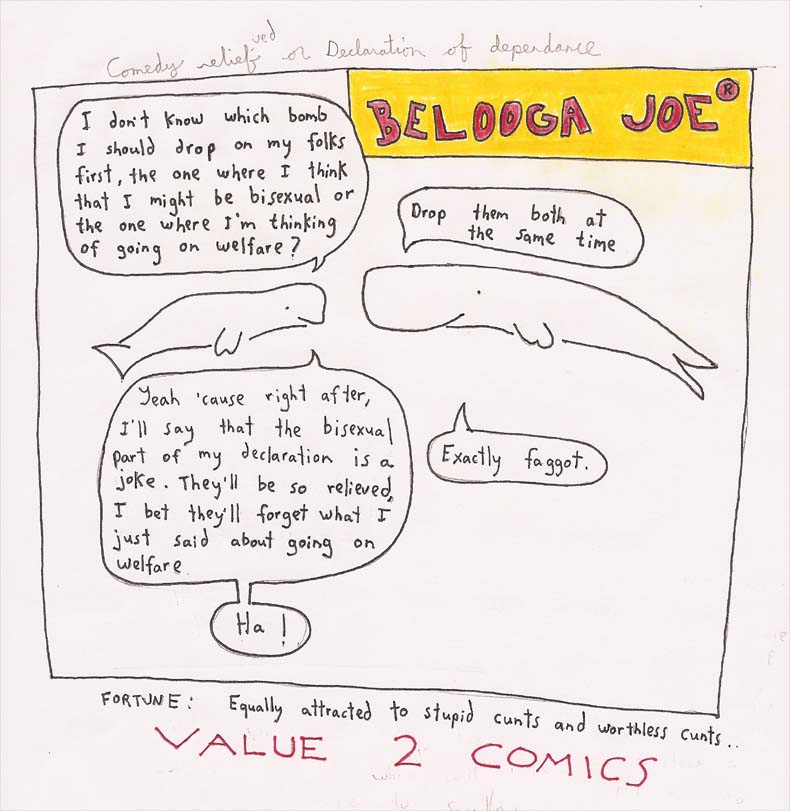 Comedy relief ved or Declaration of dependance
BELOOGA JOE®
I don't know which bomb
I should drop on my folks
first, the one where I think
that I might be bisexual or
the one where I'm thinking
of going on welfare?
Drop them both at
the same time
Yeah 'cause right after,
I'll say that the bisexual
part of my declaration is a
joke. They'll be so relieved,
I bet they'll forget what I
just said about going on
welfare.
Exactly faggot.
Ha!
FORTUNE: Equally attracted to stupid cunts and worthless cunts..
VALUE 2 COMICS